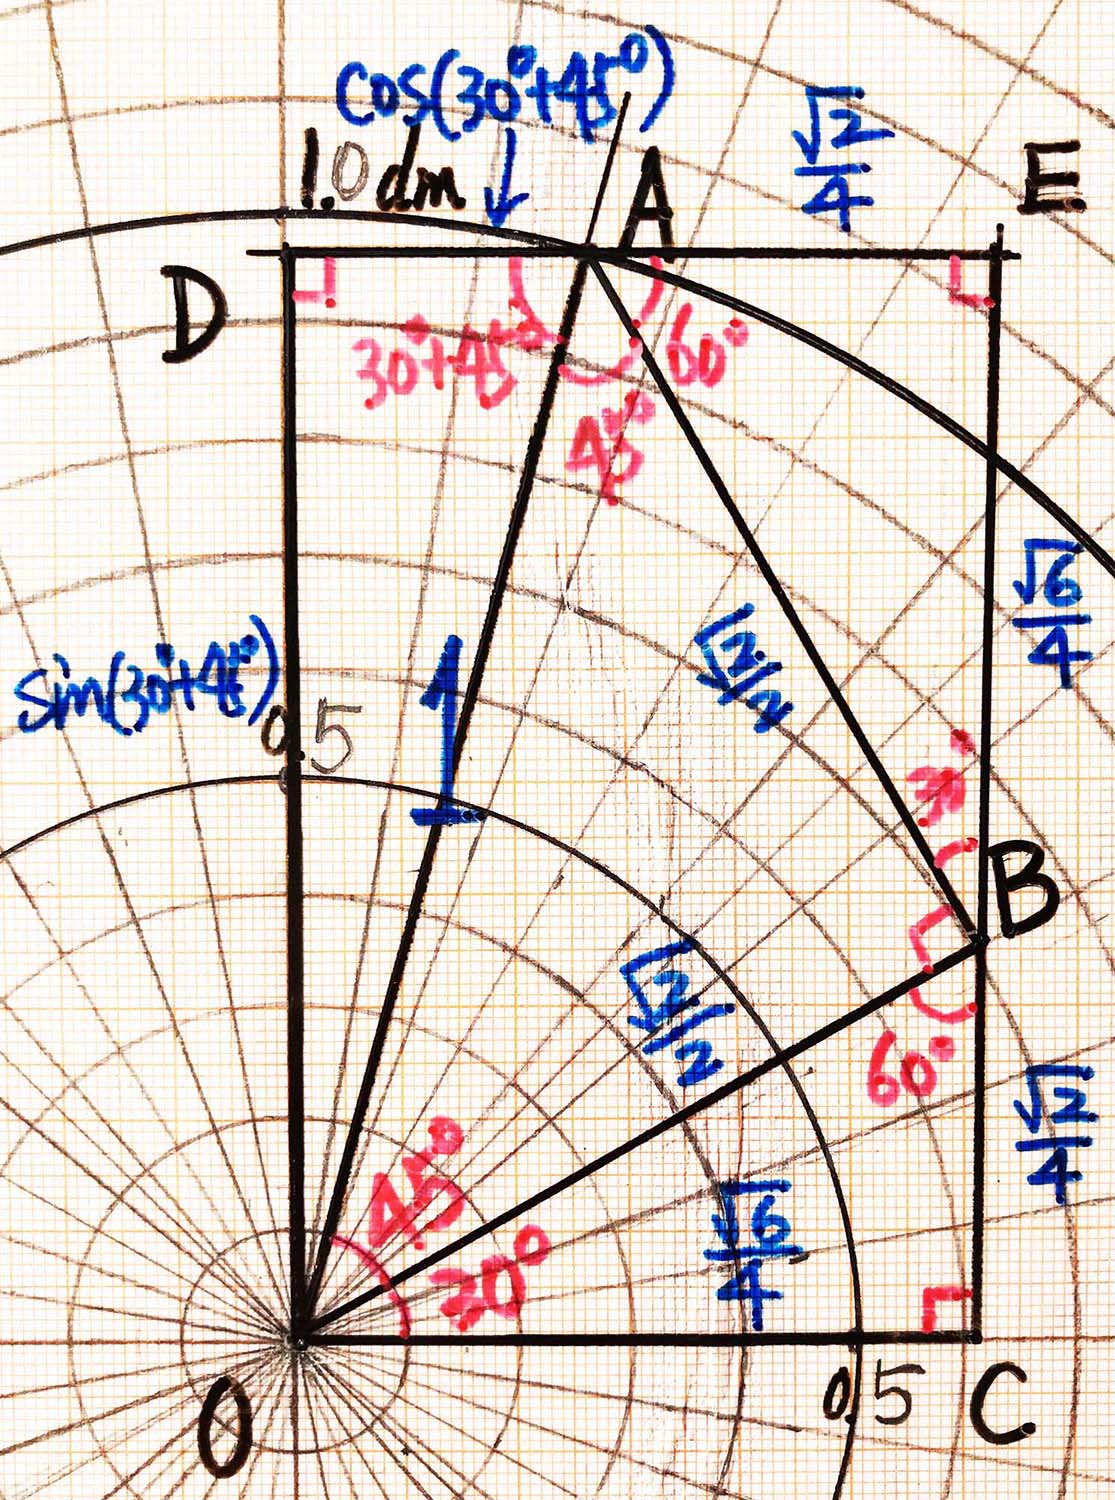 cos(30°+45°)
1.0 dm
A
√2/4
E
D
30°+45°
60°
45°
√6/4
√2/2
sin(30°+45°)
0.5
1
30°
B
√2/2
60°
√2/4
45°
30°
√6/4
0.5
O
C